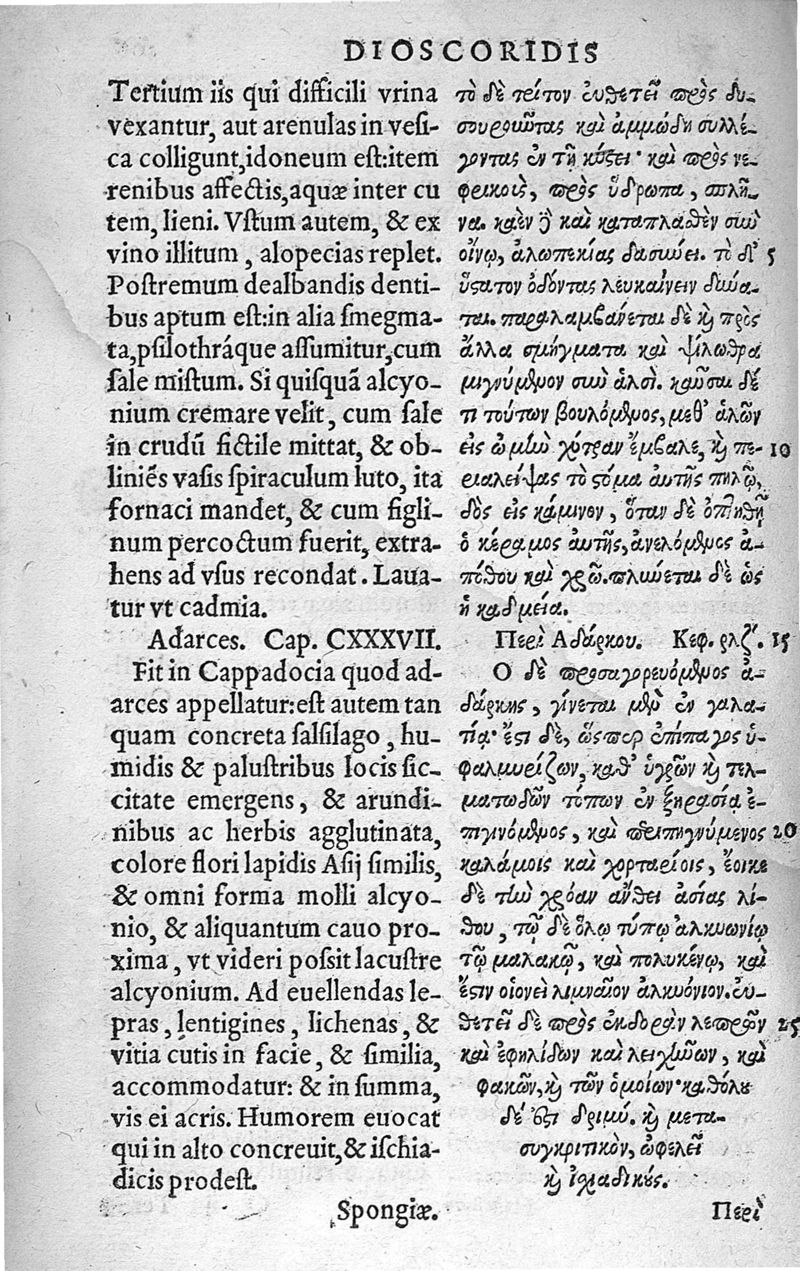 DIOSCORIDIS
Tertium iis qui difficili vrina
vexantur, aut arenulas in vesi-
ca colligunt, idoneum est: item
renibus affectis, aquæ inter cu
tem, lieni. Vstum autem, & ex
vino illitum, alopecias replet.
Postremum dealbandis denti-
bus aptum est: in alia smegma-
ta, psilothráque assumitur, cum
sale mistum. Si quisquã alcyo-
nium cremare velit, cum sale
in crudũ fictile mittat, & ob-
liniẽs vasis spiraculum luto, ita
fornaci mandet, & cum figli-
num percoctum fuerit, extra-
hens ad vsus recondat. Laua-
tur vt cadmia.
Adarces. Cap. CXXXVII.
Fit in Cappadocia quod ad-
arces appellatur: est autem tan
quam concreta salsilago, hu-
midis & palustribus locis sic-
citate emergens, & arundi-
nibus ac herbis agglutinata,
colore flori lapidis Asij similis,
& omni forma molli alcyo-
nio, & aliquantum cauo pro-
xima, vt videri possit lacustre
alcyonium. Ad euellendas le-
pras, lentigines, lichenas, &
vitia cutis in facie, & similia,
accommodatur: & in summa,
vis ei acris. Humorem euocat
qui in alto concreuit, & ischia-
dicis prodest.
Spongiæ.
τὸ δὲ τρίτον εὐθετεῖ πρὸς δυ-
σουροῦντας καὶ ἀμμώδη συλλέ-
γοντας ἐν τῇ κύστει· καὶ πρὸς νε-
φρικοὺς, πρὸς ὕδρωπα, σπλῆ-
να. καὲν δὲ καὶ καταπλαθὲν σὺν
οἴνῳ, ἀλωπεκίας δασύνει. τὸ δ' 5
ὕστατον ὀδόντας λευκαίνειν δύνα-
ται. παραλαμβάνεται δὲ καὶ πρὸς
ἄλλα σμήγματα καὶ ψίλωθρα
μιγνύμενον σὺν ἁλσί. καῦσαι δέ
τι τούτων βουλόμενος, μεθ' ἁλῶν
εἰς ὠμὴν χύτραν ἔμβαλε, καὶ πε- 10
ριαλείψας τὸ στόμα αὐτῆς πηλῷ,
δὸς εἰς κάμινον, ὅταν δὲ ὀπτηθῇ
ὁ κέραμος αὐτῆς, ἀνελόμενος ἀ-
πόθου καὶ χρῶ. πλύνεται δὲ ὡς
ἡ καδμεία.
Περὶ Ἀδάρκου. Κεφ. ρλζʹ. 15
Ὁ δὲ προσαγορευόμενος ἀ-
δάρκης, γίνεται μὲν ἐν γαλα-
τίᾳ· ἔστι δὲ, ὥσπερ ἐπίπαγος ὑ-
φαλμυρίζων, καθ' ὑγρῶν καὶ τελ-
ματωδῶν τόπων ἐν ξηρασίᾳ ἐ-
πιγινόμενος, καὶ περιπηγνύμενος 20
καλάμοις καὶ χορταρίοις, ἔοικε
δὲ τὴν χρόαν ἄνθει ἀσίας λί-
θου, τῷ δὲ ὅλῳ τύπῳ ἀλκυωνίῳ
τῷ μαλακῷ, καὶ πολυκένῳ, καὶ
ἔστιν οἱονεὶ λιμναῖον ἀλκυόνιον. εὐ-
θετεῖ δὲ πρὸς ἐκδορὰν λεπρῶν 25
καὶ ἐφηλίδων καὶ λειχήνων, καὶ
φακῶν, καὶ τῶν ὁμοίων· καθόλου
δέ ἐστι δριμύ. καὶ μετα-
συγκριτικὸν, ὠφελεῖ
καὶ ἰσχιαδικούς.
Περὶ